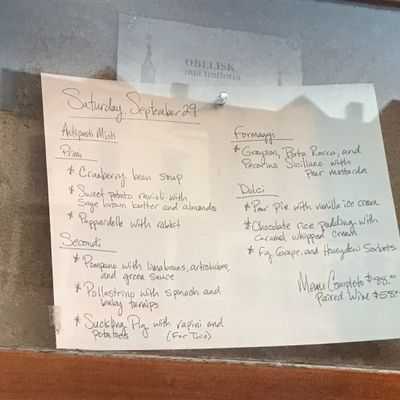 OBELISK
una trattoria
Saturday, September 29
Antipasti Misti
Primi
* Cranberry bean soup
* Sweet potato ravioli with
sage brown butter and almonds
* Pappardelle with rabbit
Secondi
* Pompano with lima beans, artichokes,
and green sauce
* Pollastrino with spinach and
baby turnips
* Suckling Pig with rapini and
potatoes (For Two)
Formaggi
* Grayson, Porta Rocca, and
Pecorino Siciliano with
Pear mostarda
Dolci
* Pear Pie with vanilla ice cream
* Chocolate rice pudding with
caramel whipped cream
* Fig, Grape, and Honeydew Sorbets
Menu Completo $88.
Paired Wine $58